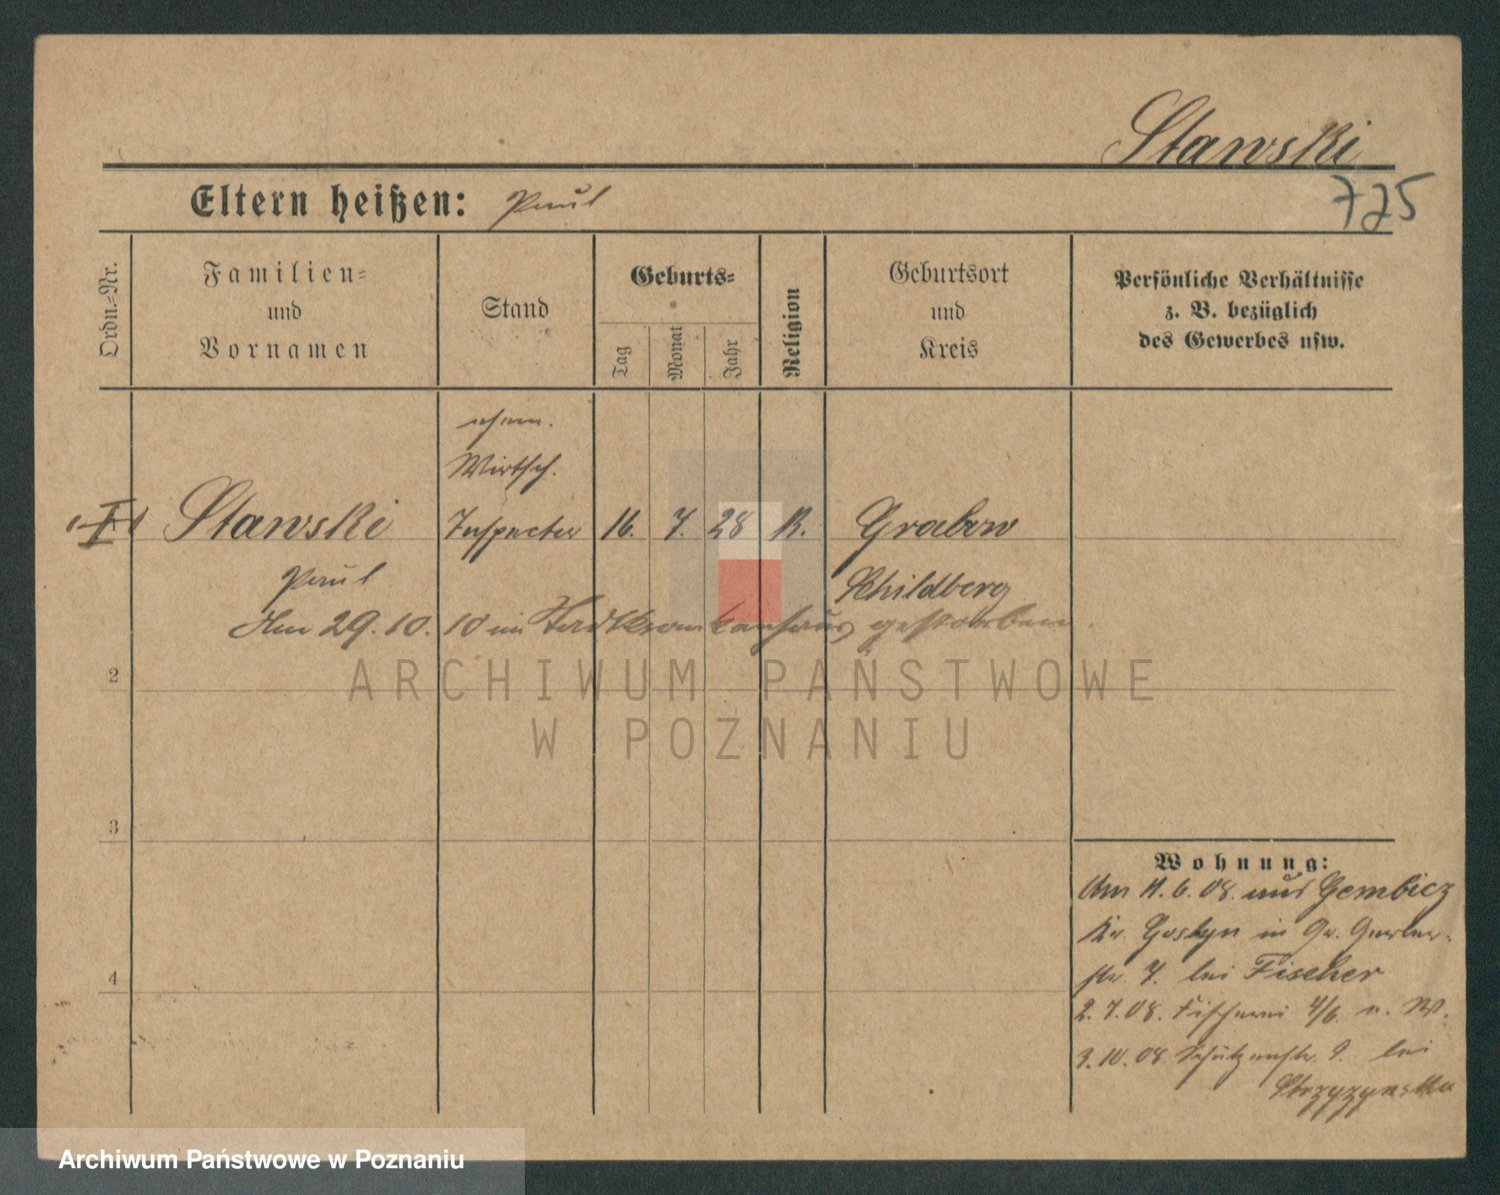 Stawski
725
Eltern heißen: Paul
Ordn.-Nr.
Familien-
und
Vornamen
Stand
Geburts-
Tag
Monat
Jahr
Religion
Geburtsort
und
Kreis
Persönliche Verhältnisse
z. B. bezüglich
des Gewerbes usw.
ehem.
Wirtsch.
1 Stawski Inspector 16. 7. 28 K. Grabow
Paul Schildberg
Am 29.10.10 im Stadtkrankenhaus gestorben.
2
3
4
Wohnung:
Am 11.6.08. aus Gembicz
Kr. Gostyn in Gr. Gerber-
str. 7. bei Fischer
2.7.08. Fischerei 4/6 n. W.
3.10.08. Schützenstr. 9. bei
ARCHIWUM PAŃSTWOWE
W POZNANIU
Archiwum Państwowe w Poznaniu